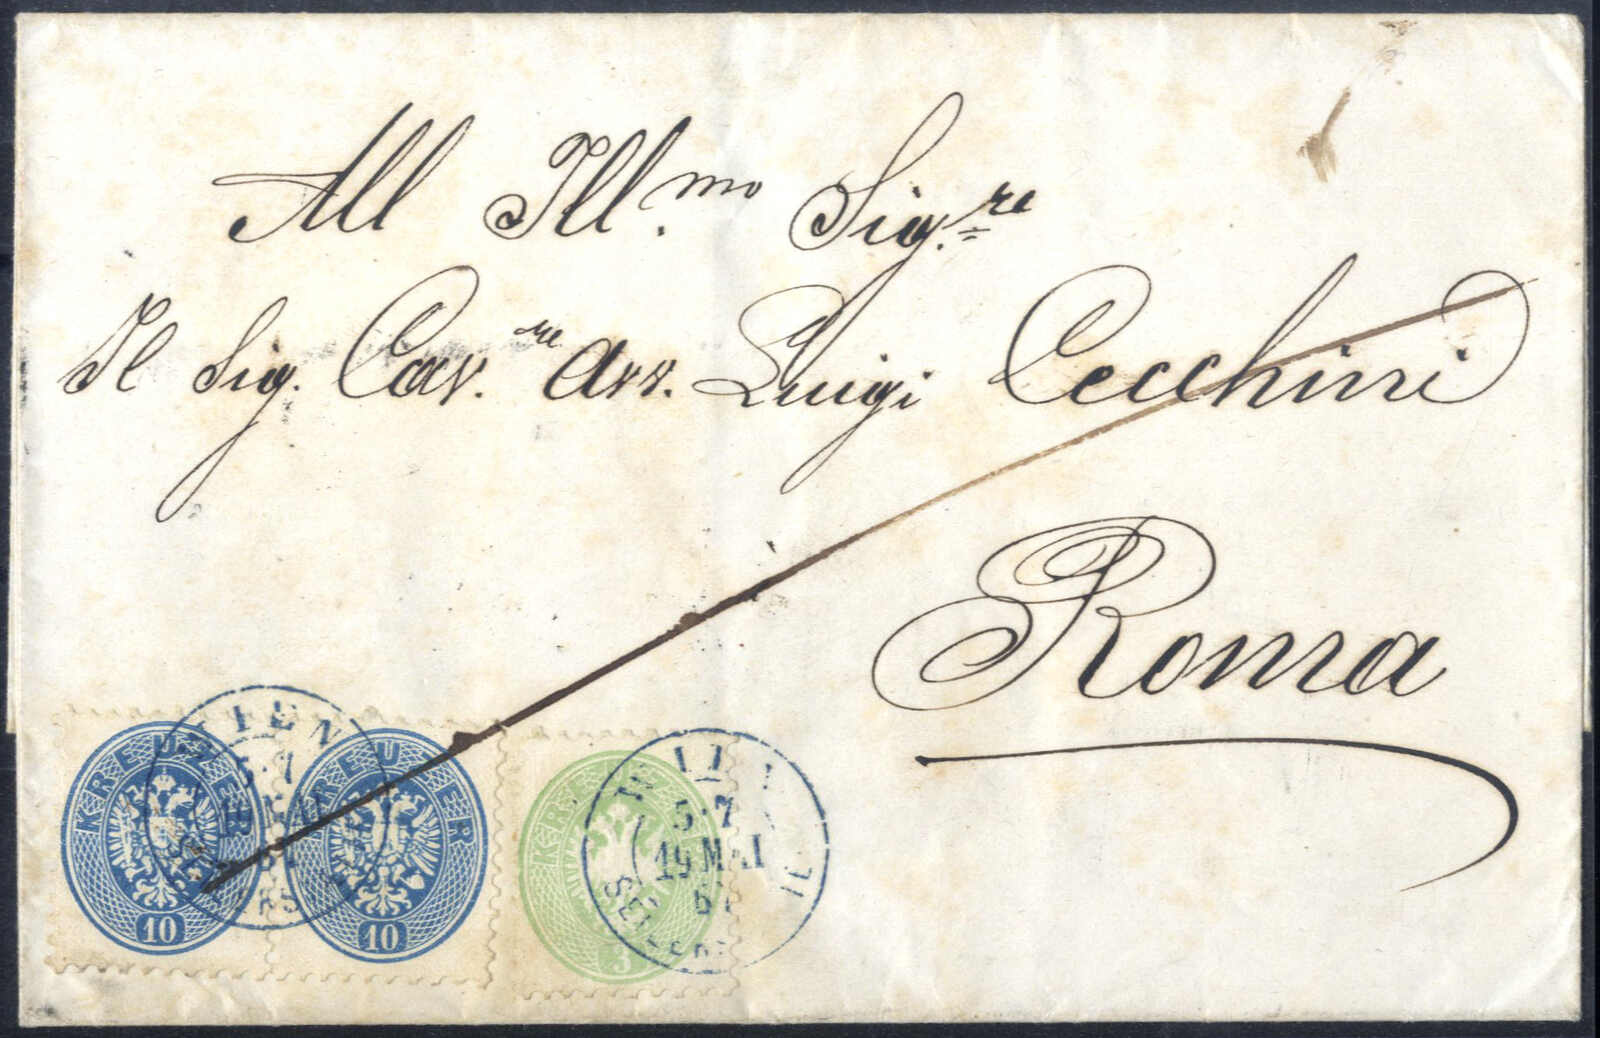 All Ill.mo Sig.re
Il Sig. Cav.re Avv. Luigi Cecchini
Roma
KREUZER
10
KREUZER
10
WIEN
5·7
KREUZER
3
WIEN
5·7
19 MAI